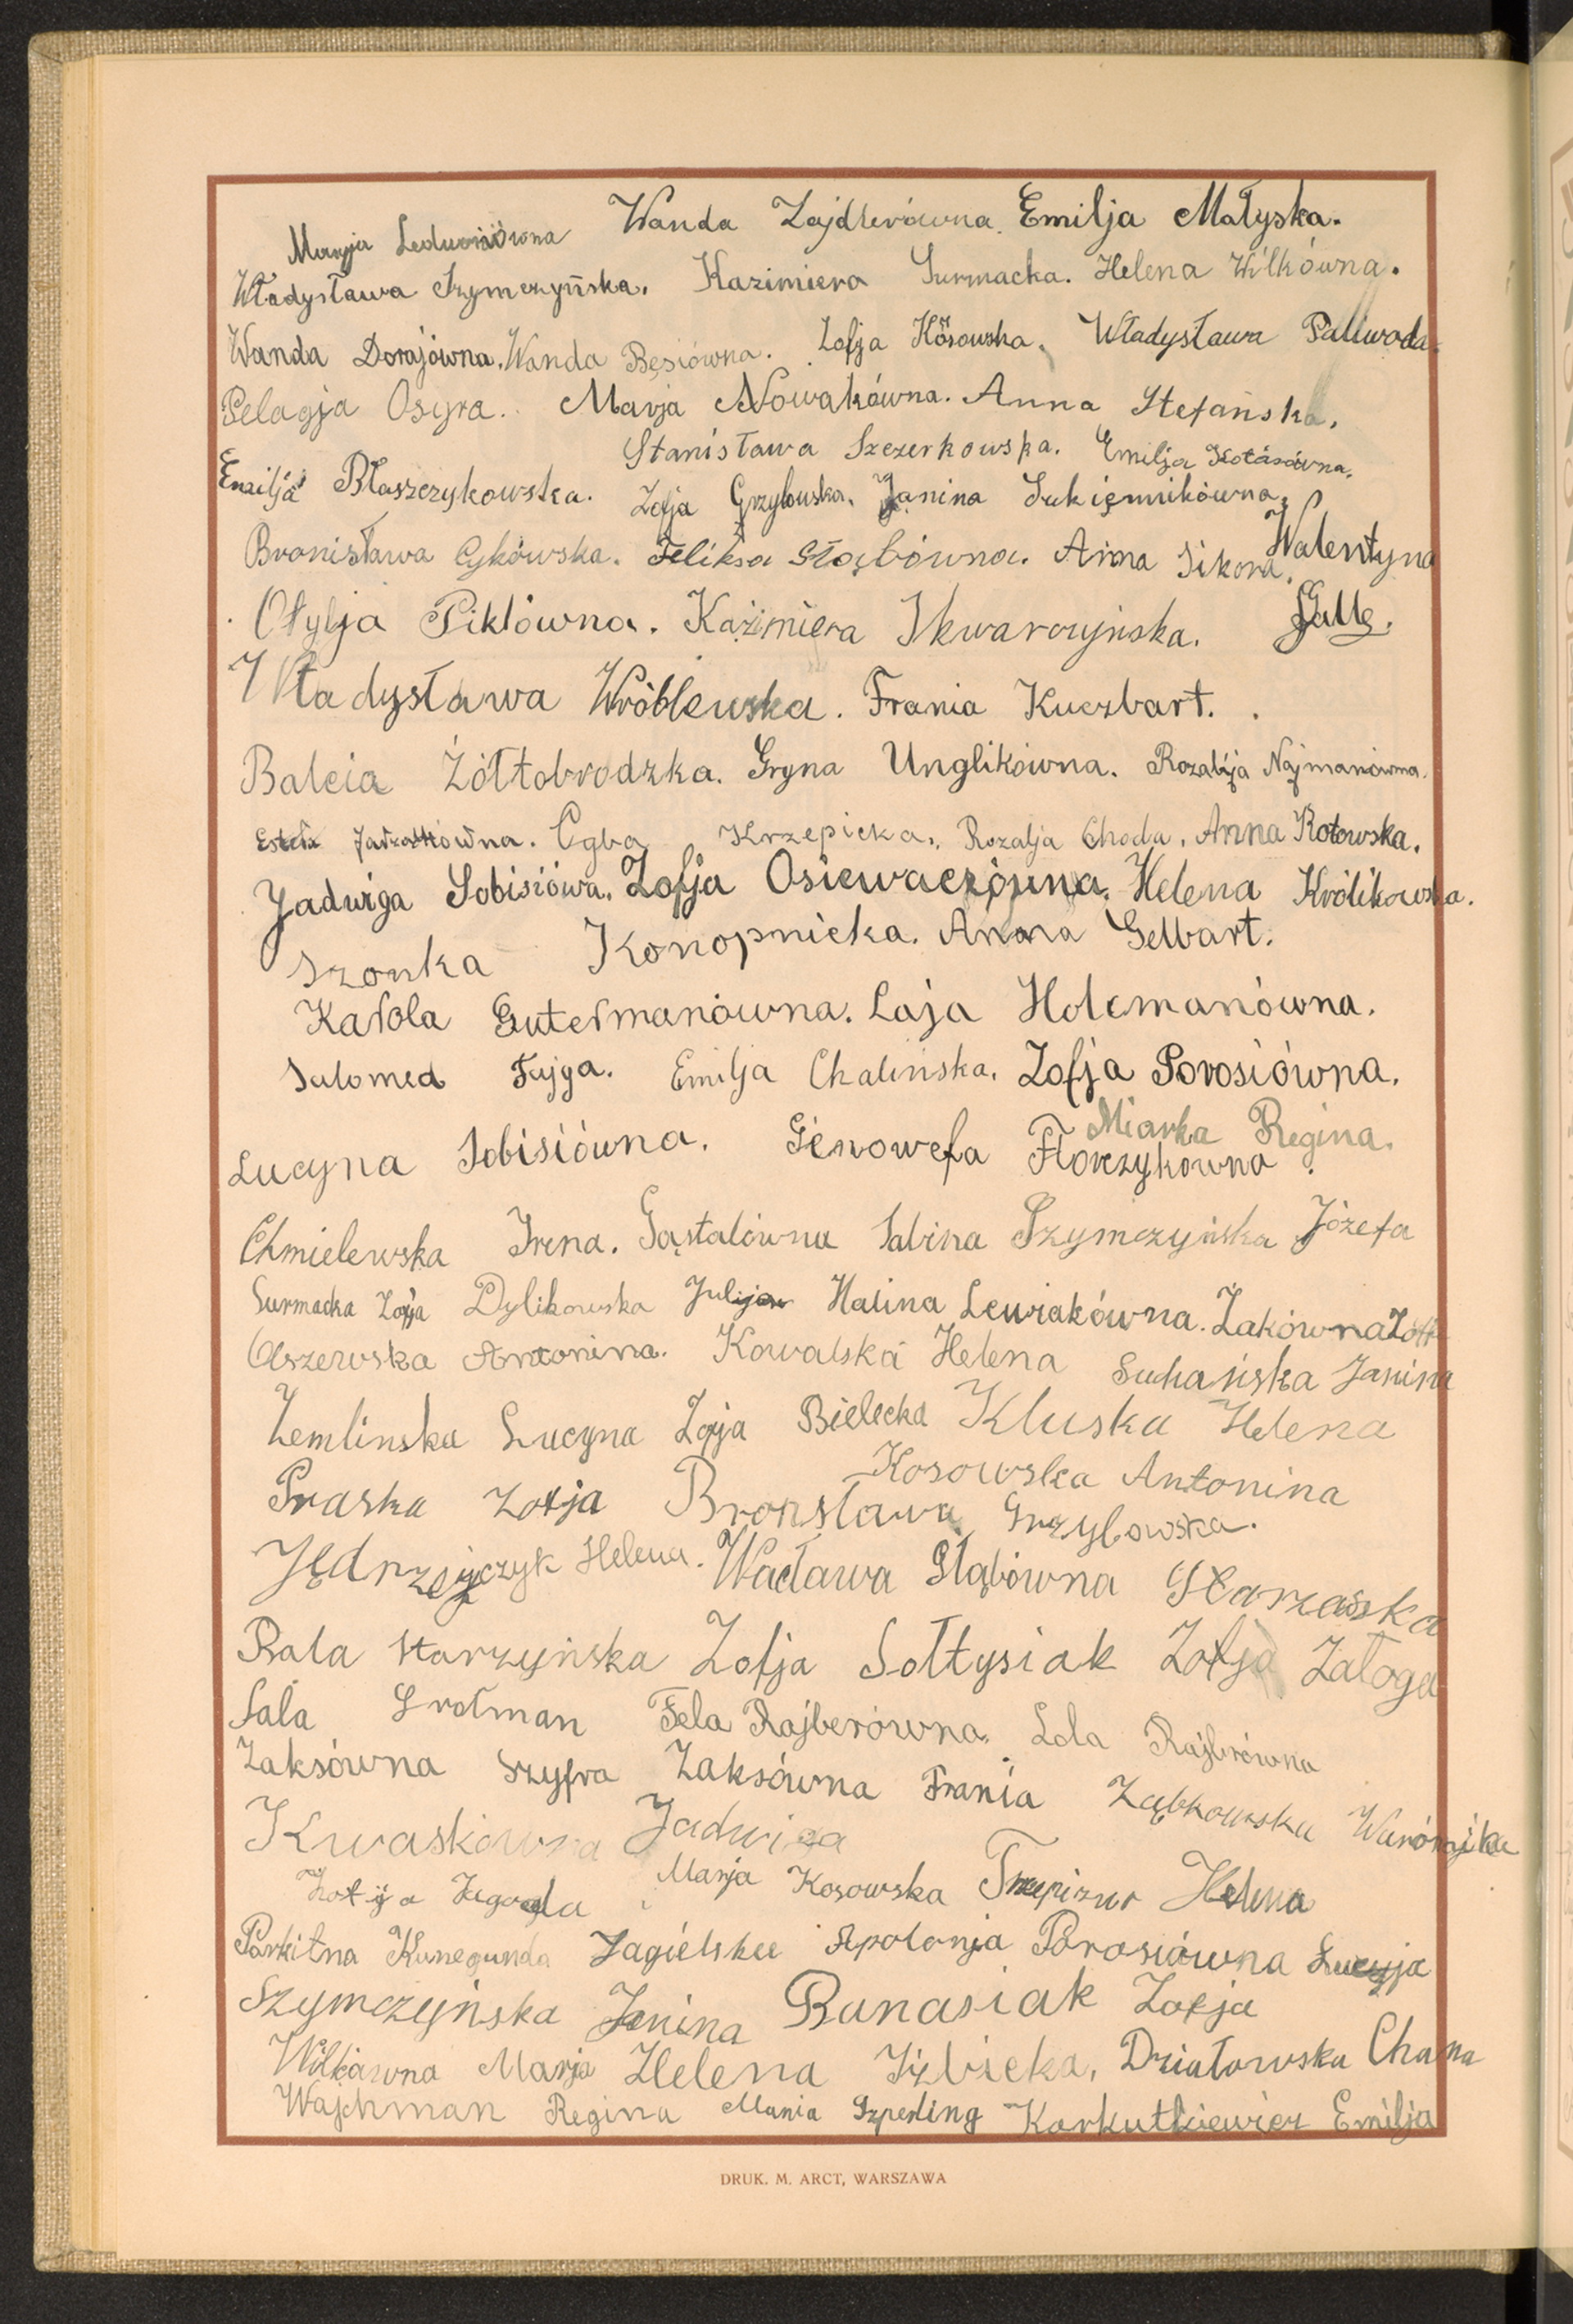 Wanda Zajdlerówna. Emilja Małyska.
Maryja
Władysława Szymczyńska. Kazimiera Surmacka. Helena Wilkówna.
Wanda Dorajówna. Wanda Bęsiówna. Zofja Kosowska. Władysława Paliwoda.
Pelagja Osyra. Marja Nowakówna. Anna Stefańska.
Stanisława Szczerkowska. Emilja Kotasówna.
Emilja Błaszczykowska. Zofja Grzybowska. Janina Sukiennikówna.
Bronisława Cykowska. Feliksa Słabówna. Anna Sikora. Walentyna
Otylja Piklówna. Kazimiera Skwarczyńska. Galle.
Władysława Wróblewska. Frania Kuczbart.
Balcia Żółtobrodzka. Gryna Unglikówna. Rozalja Najmanówna.
Estera Cgba Krzepicka. Rozalja Choda. Anna Kotowska.
Jadwiga Sobisiówa. Zofja Osiewaczówna. Helena Królikowska.
Szonka Konopnicka. Anna Gelbart.
Karola Gutermanówna. Łaja Holcmanówna.
Salomea Fajga. Emilja Chalińska. Zofja Porosiówna.
Miarka Regina.
Lucyna Sobisiówna. Genowefa Florczykowna.
Chmielewska Irena. Gąstalówna Sabina Szymczyńska Józefa
Surmacka Zofja Dylikowska Julija Halina Lewiakówna. Żakówna
Olszewska Antonina. Kowalska Helena Suchańska Janina
Zemlinska Lucyna Zofja Bielecka Kluska Helena
Kosowska Antonina
Praska Zofja Bronsława Grzybowska.
Jędrzejczyk Helena. Wacława Słabówna Skarzaska
Rala Starzyńska Zofja Sołtysiak Zofja Załoga
Sala Grotman Fela Rajberówna. Lola Rajbrówna
Zaksówna Szyfra Zaksówna Frania Ząbkowska Warónajka
Kwaskówna Jadwiga
Zofija Jagoda Marja Kosowska Trzepizur Helena
Parkitna Kunegunda Jagielska Apolonja Porosiówna Lucyja
Szymczyńska Janina Banasiak Zofja
Wilkówna Marja Helena Izbicka, Działowska Chana
Wajchman Regina Mania Szperling Karkutkiewicz Emilja
DRUK. M. ARCT, WARSZAWA